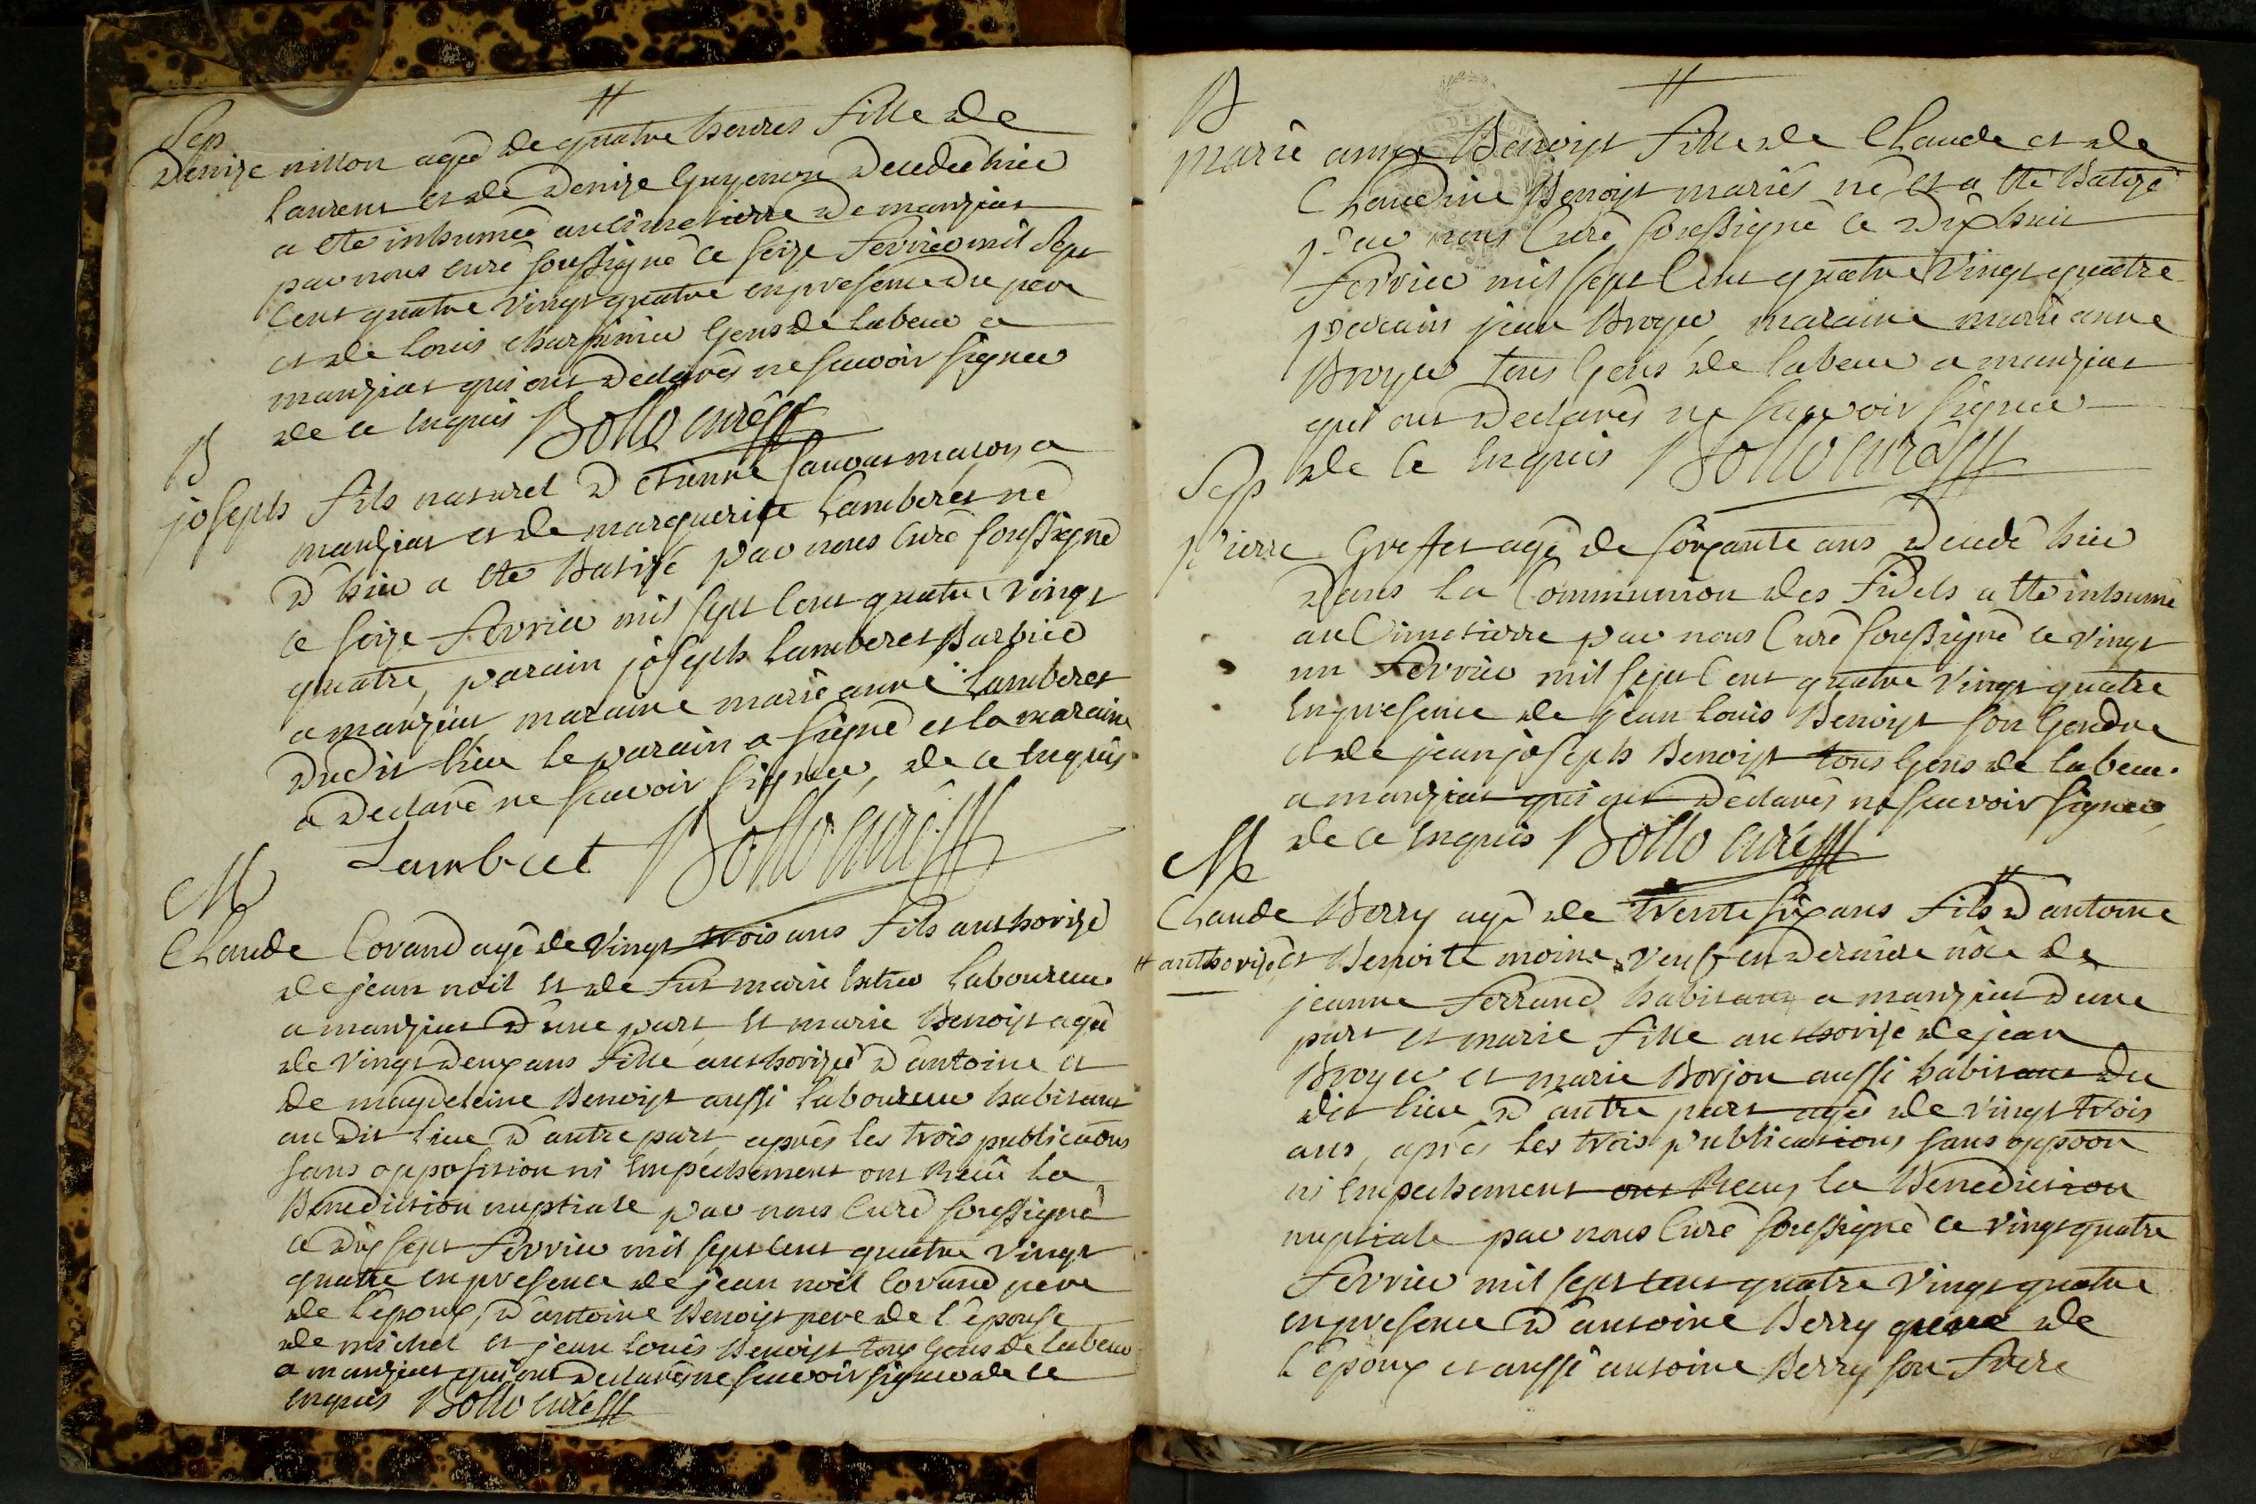 Sep
Denize nillon agée de quatre heures fille de
Laurent et de Denize Guyenon decedée hier
a été inhumée au cimetierre de manziat
par nous curé soussigné ce seize fevrier mil sept
cent quatre vingt quatre en presence du pere
et de Louis gens de labeur a
manziat qui ont declarés ne scavoir signer
de ce enquis Bollo curé
B
joseph fils naturel d'etienne maçon a
manziat et de marguerite Lamberet né
d'hier a été Batisé par nous Curé soussigné
ce seize fevrier mil sept cent quatre vingt
quatre, parain joseph Lamberet Barbier
a manziat maraine marie anne Lamberet
dudit lieu le parain a signé et la maraine
a declaré ne scavoir signer, de ce enquis
Lambret Bollo curé
M
Claude Corand agé de vingt trois ans fils authorizé
de jean noel et de fut marie laboureur
a manziat d'une part et marie Benoist agée
de vingt deux ans fille authorizée d'antoine et
de magdeleine Benoist aussi laboureur habitant
au dit lieu d'autre part, aprés les trois publicaõns
sans opposition ni Empéchement ont Recu la
Benediction nuptiale par nous Curé soussigné
ce dix sept fevrier mil sept cent quatre vingt
quatre en presence de jean noel Corand pere
de l'époux, d'antoine Benoist pere de l'épouse
de michel et jean Louis Benoist tous gens de labeur
a manziat qui ont declarés ne scavoir signer de ce
enquis Bollo curé
B
marie anne Benoist fille de Claude et de
Claudine Benoist mariés né et a été Batizé
par nous Curé soussigné ce dix huit
fevrier mil sept Cent quatre vingt quatre
parain jean Broyer maraine marie anne
Broyer tous gens de labeur a manziat
qui ont declarés ne scavoir signer
de ce enquis Bollo curé
Sep
Pierre Greffet agé de soixante ans decedé hier
dans la Communion des fidels a été inhumé
au Cimetierre par nous Curé soussigné ce vingt
un fevrier mil sept Cent quatre vingt quatre
En presence de jean Louis Benoist son gendre
et de jean joseph Benoist tous gens de labeur
a manziat qui ont declarés ne scavoir signer,
de ce enquis Bollo curé
M
Claude Berry agé de trente six ans fils d'antoine
authorizé et Benoite moine, veuf en derniére nôce de
jeanne Ferrand habitant a manziat d'une
part et marie fille authorisé de jean
Broyer et marie Borjon aussi habitant du
dit lieu d'autre part agée de vingt trois
ans, aprés les trois publications sans oppoõn
ni Empechement ont Recus la Benediction
nuptiale par nous Curé soussigné ce vingt quatre
fevrier mil sept cent quatre vingt quatre
en presence d'antoine Berry pere de
l'époux et aussi antoine Berry son frere